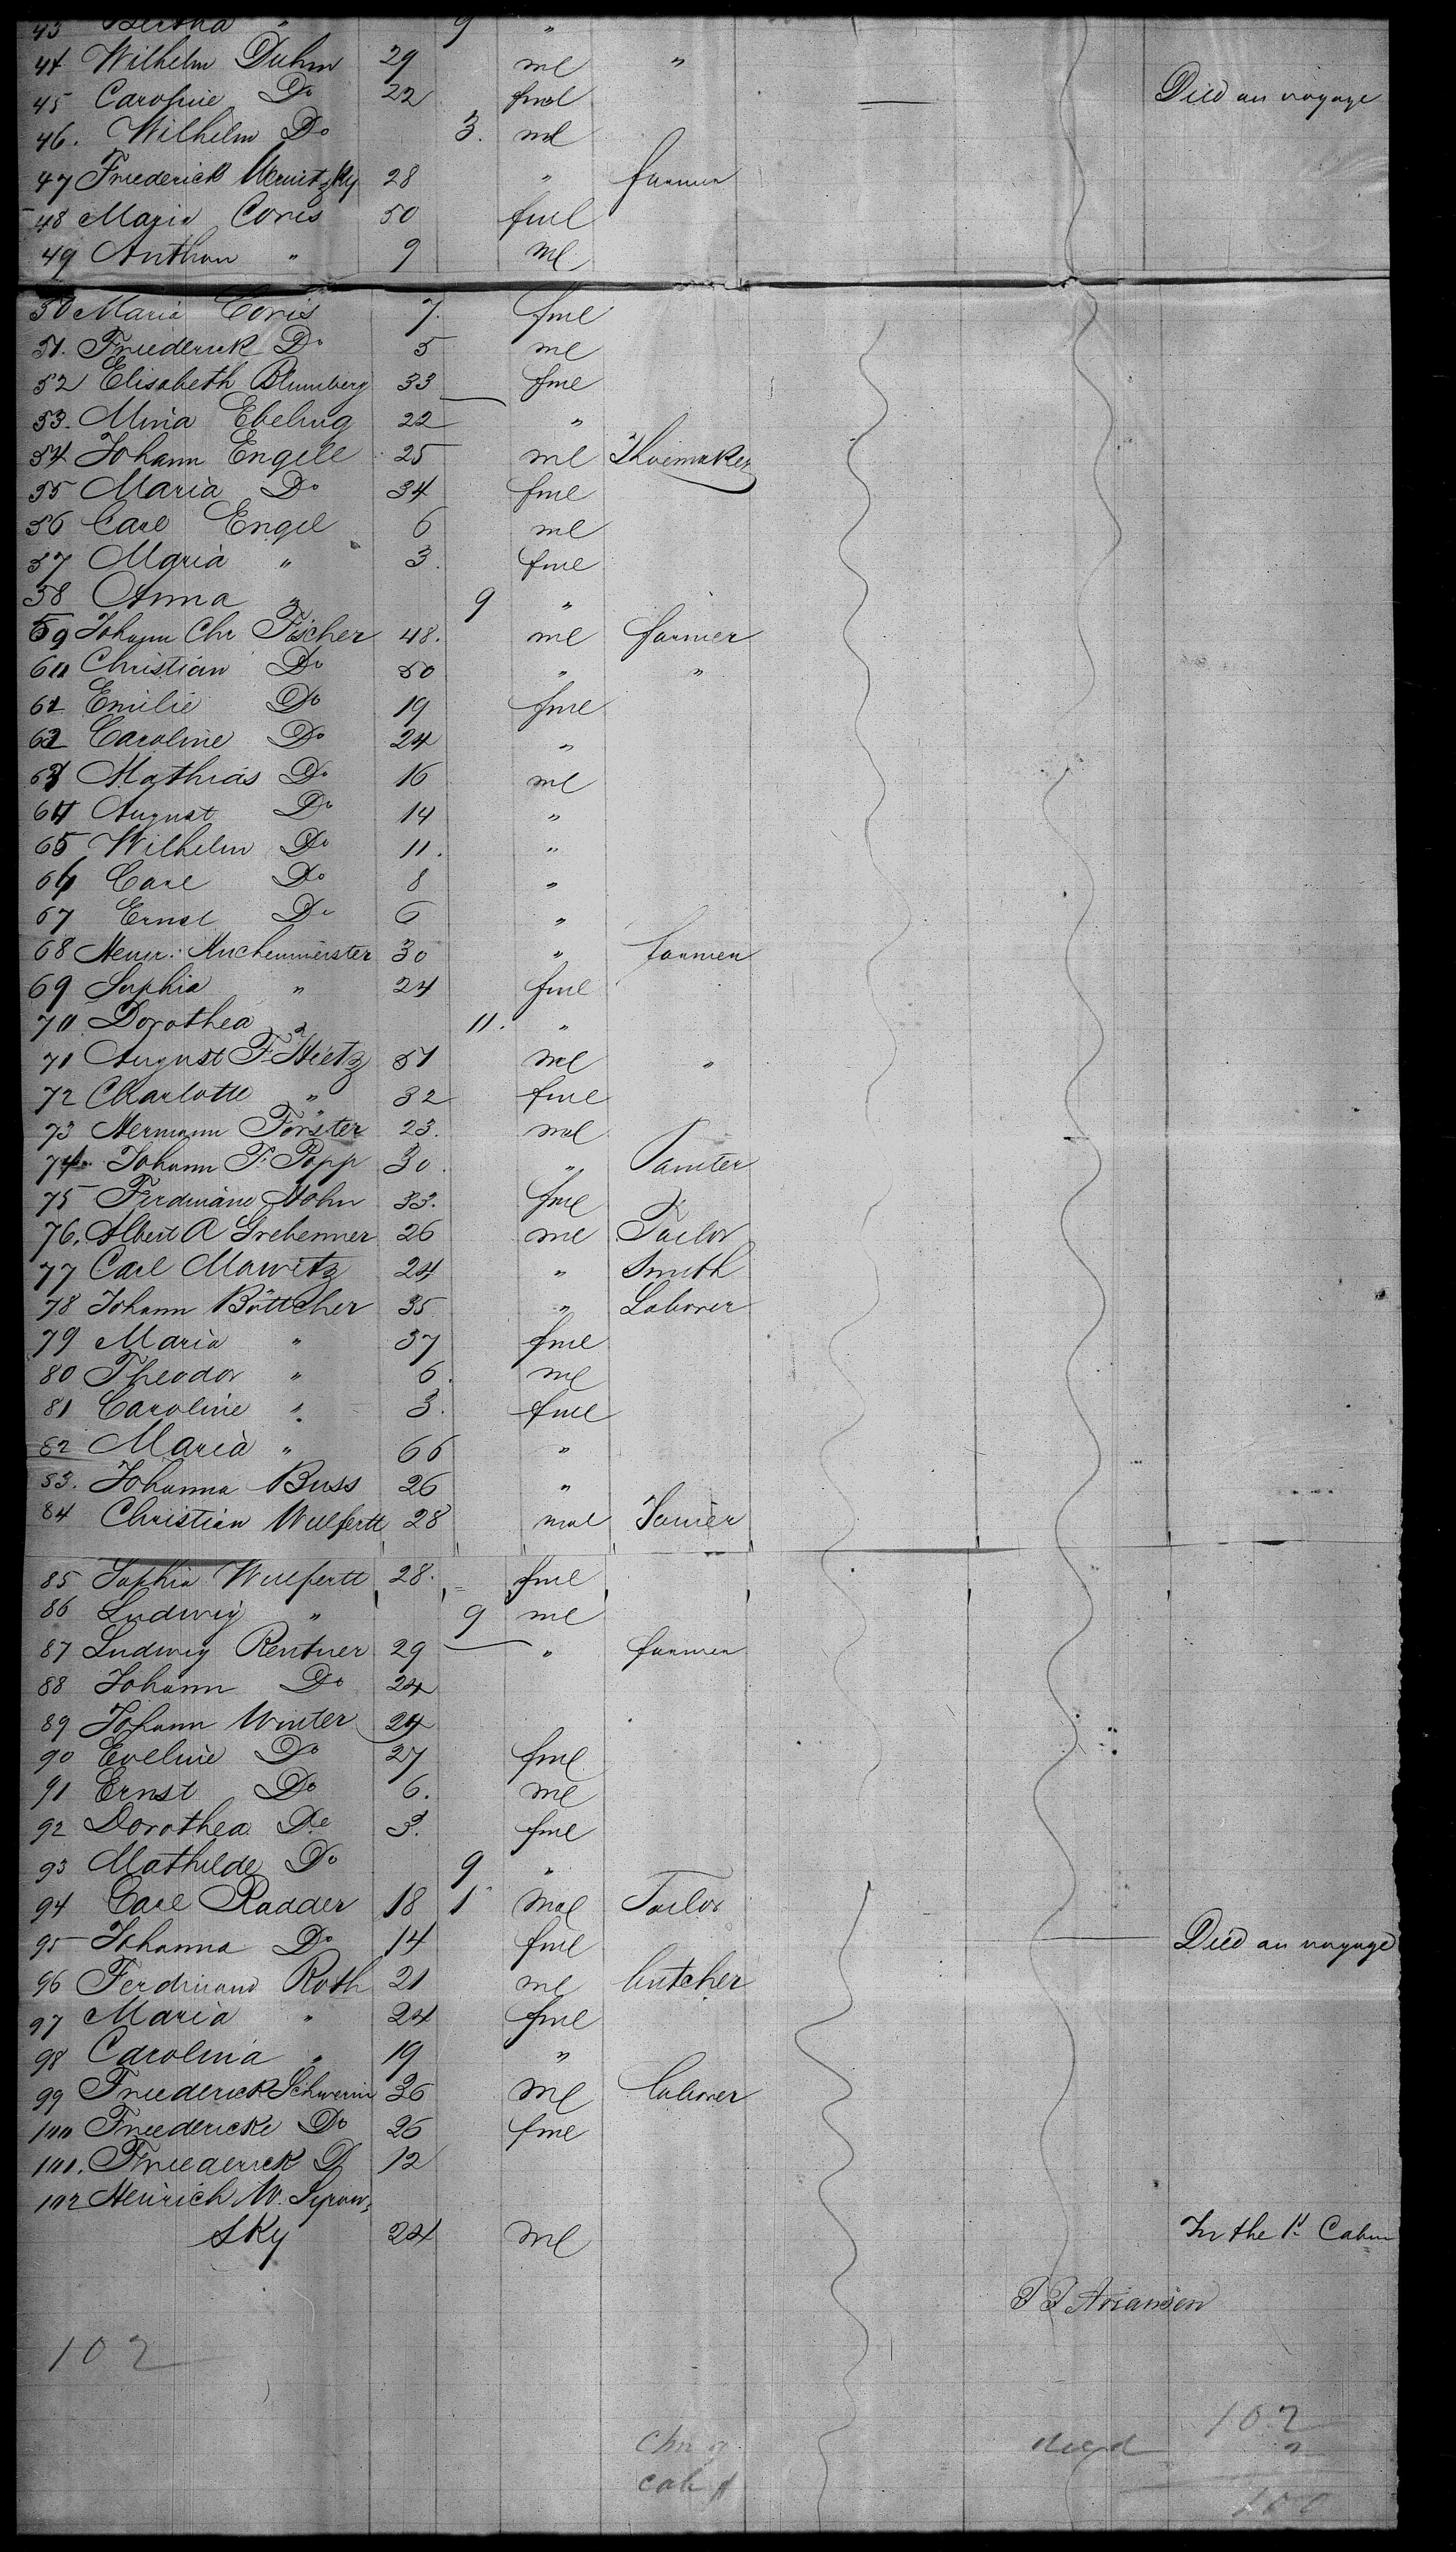 43 Bertha " 9 "
44 Wilhelm Duhm 29 ml "
45 Caroline Do 22 fml — Died on voyage
46. Wilhelm Do 3. ml
47 Friederick 28 " farmer
48 Maria Coris 50 fml
49 Anthon " 9 ml
50 Maria Coris 7. fml
51. Friederick Do 5 ml
52 Elisabeth Blumberg 33 fml
53. Mina Ebeling 22 "
54 Johann Engell 25 ml Shoemaker
55 Maria Do 34 fml
56 Carl Engel 6 ml
57 Maria " 3. fml
58 Anna " 9 "
59 Johann Chr Fischer 48. ml farmer
60 Christian Do 50 " "
61 Emilie Do 19 fml
62 Caroline Do 24 "
63 Mathias Do 16 ml
64 August Do 14 "
65 Wilhelm Do 11. "
66 Carl Do 8 "
67 Ernst Do 6 "
68 Heinr. Kuchenmeister 30 " farmer
69 Sophia " 24 fml
70 Dorothea " 11. "
71 August F. Hietz 51 ml "
72 Charlotte " 32 fml
73 Hermann Förster 23. ml
74. Johann F. Popp 30. " Painter
75 Ferdinane Hohn 33. fml
76. Albert A Grebenner 26 ml Tailor
77 Carl Mawitz 24 " Smith
78 Johann Böttcher 35 " Laborer
79 Maria " 37 fml
80 Theodor " 6. ml
81 Caroline " 3. fml
82 Maria " 66 "
83. Johanna Buss 26 "
84 Christian Wulfertt 28 mal
85 Sophia Wulfertt 28. fml
86 Ludwig " 9 ml
87 Ludwig Rentner 29 " farmer
88 Johann Do 24
89 Johann Winter 24
90 Eveline Do 27 fml
91 Ernst Do 6. ml
92 Dorothea Do 3. fml
93 Mathilde Do 9 "
94 Carl Radder 18 1 mal Tailor
95 Johanna Do 14 fml — Died on voyage
96 Ferdinand Roth 21 ml butcher
97 Maria " 24 fml
98 Carolina " 19 "
99 Friederick Schwerin 36 ml laborer
100 Friedericke Do 26 fml
101. Friederick D 12
102 Heinrich W. Syrow-
sky 24 ml In the 1st Cabin
102
102